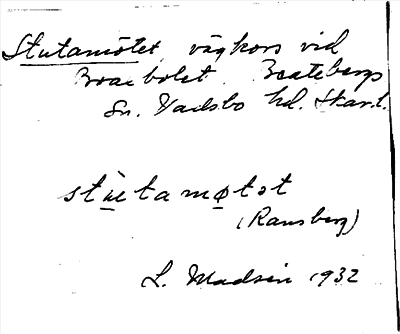 Stutamötet, vägkors vid
Braebolet. Beatebergs
Sn. Vadsbo hd. Skar.l.
stùtamøtət
(Ransberg)
L. Madsén 1932